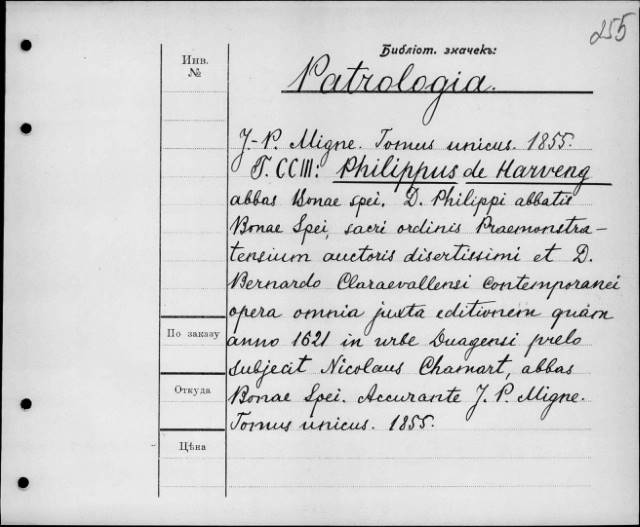 255
Библіот. значекъ:
Инв.
№
Patrologia.
J.-P. Migne. Tomus unicus. 1855.
T. CCIII: Philippus de Harveng
abbas Bonae spei. D. Philippi abbatis
Bonae Spei, sacri ordinis Praemonstra-
tensium auctoris disertissimi et D.
Bernardo Claraevallensi contemporanei
opera omnia juxta editionem quam
По заказу
anno 1621 in urbe Duagensi prelo
subjecit Nicolaus Chamart, abbas
Откуда
Bonae Spei. Accurante J. P. Migne.
Tomus unicus. 1855.
Цѣна